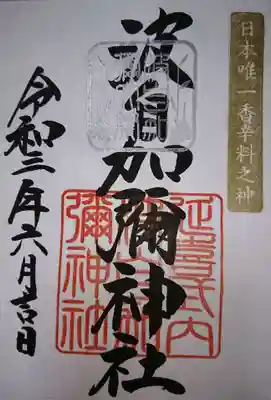 日本唯一香辛料之神
波自加彌神社
令和三年六月吉日
延喜式内
波自加
彌神社